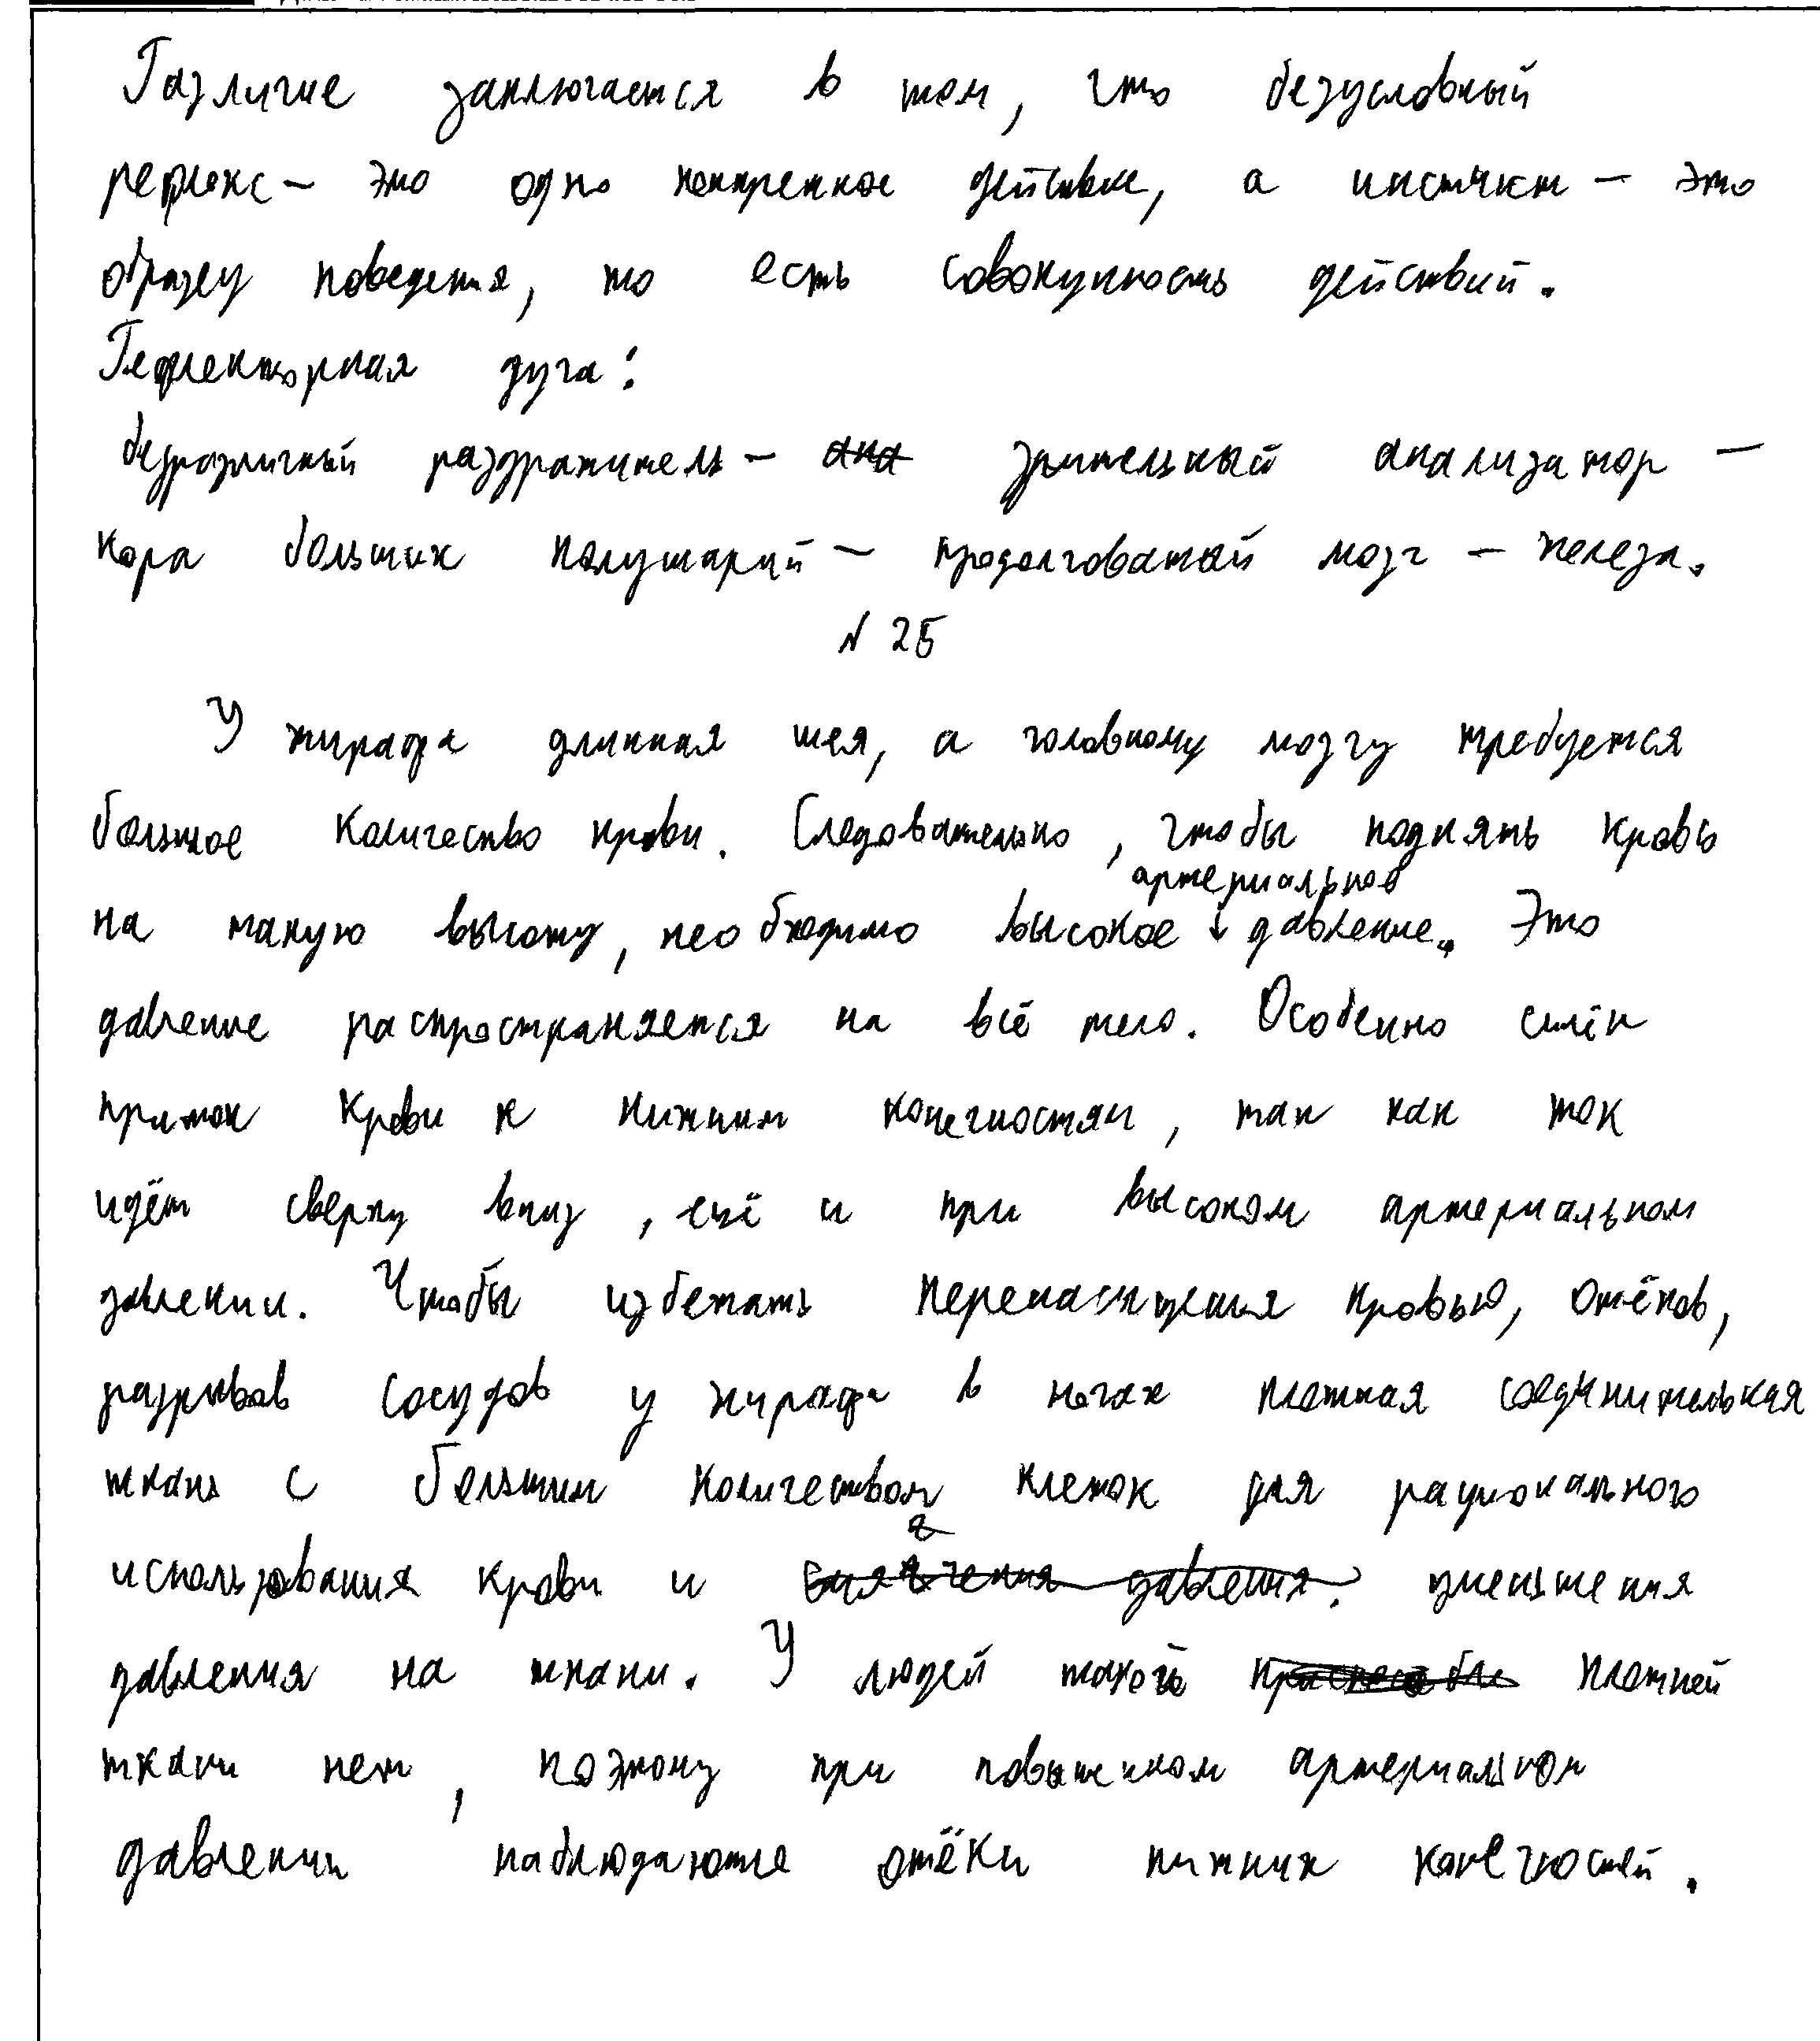 Различие заключается в том, что безусловный
рефлекс – это одно конкретное действие, а инстинкт – это
образец поведения, то есть совокупность действий.
Рефлекторная дуга:
безразличный раздражитель – ана зрительный анализатор –
кора больших полушарий – продолговатый мозг – железа.
N 25
У жирафа длинная шея, а головному мозгу требуется
большое количество крови. Следовательно, чтобы поднять кровь
артериальное
на такую высоту, необходимо высокое ↓ давление. Это
давление распространяется на всё тело. Особенно силён
приток крови к нижним конечностям, так как ток
идёт сверху вниз, ещё и при высоком артериальном
давлении. Чтобы избежать перенасыщения кровью, отёков,
разрывов сосудов у жирафа в ногах плотная соединительная
ткань с большим количеством клеток для рационального
использования крови и смягчения давления. уменьшения
давления на ткани. У людей такой плотной
ткани нет, поэтому при повышенном артериальном
давлении наблюдаются отёки нижних конечностей.